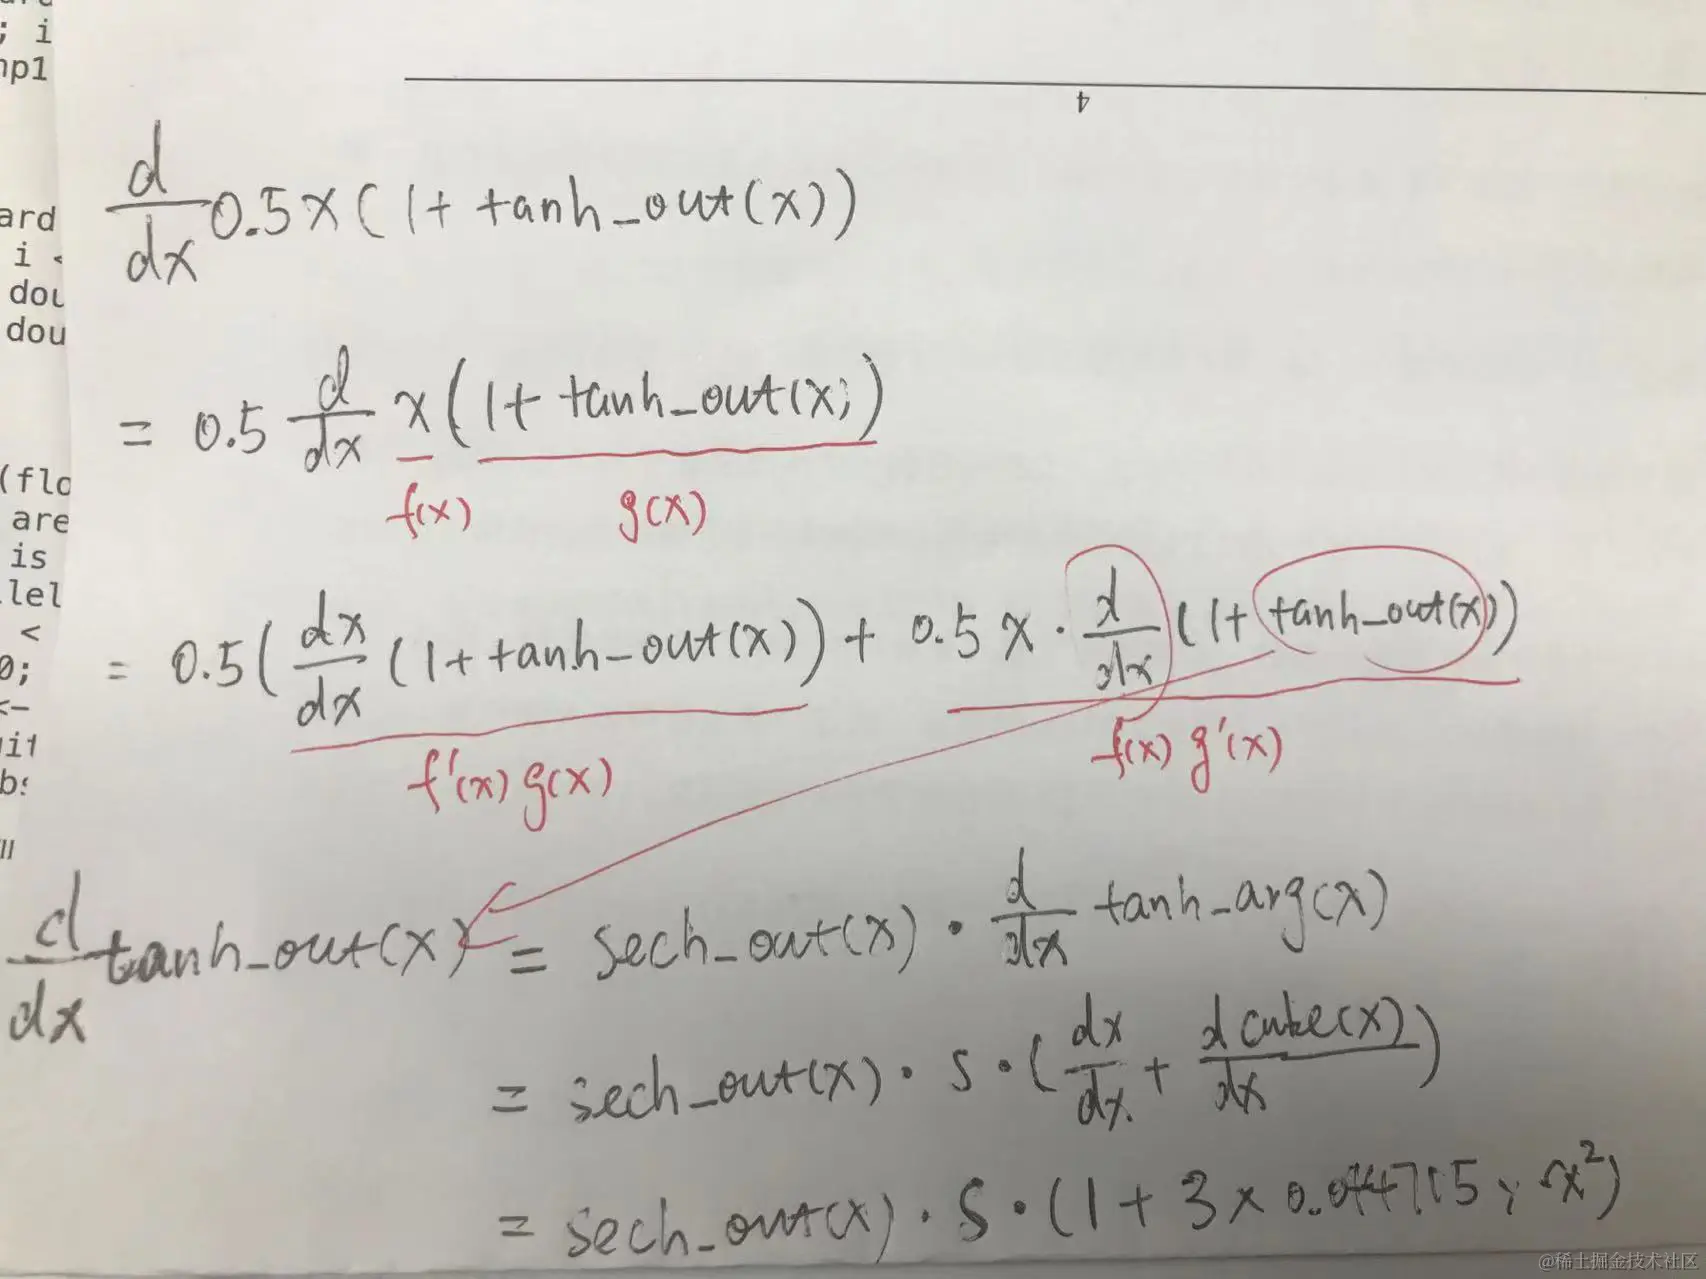 ; i
np1
4
ard
i <
dou
dou
d/dx 0.5x(1+ tanh_out(x))
= 0.5 d/dx x(1+ tanh_out(x))
f(x) g(x)
(flo
are
is
llel
<
0;
<-
= 0.5(dx/dx (1+tanh_out(x)) + 0.5 x · d/dx (1+ tanh_out(x))
f'(x) g(x) f(x) g'(x)
d/dx tanh_out(x) = sech_out(x) · d/dx tanh_arg(x)
= sech_out(x) · s · (dx/dx + d cube(x)/dx)
= sech_out(x) · s · (1 + 3 × 0.044715 x²)
@稀土掘金技术社区